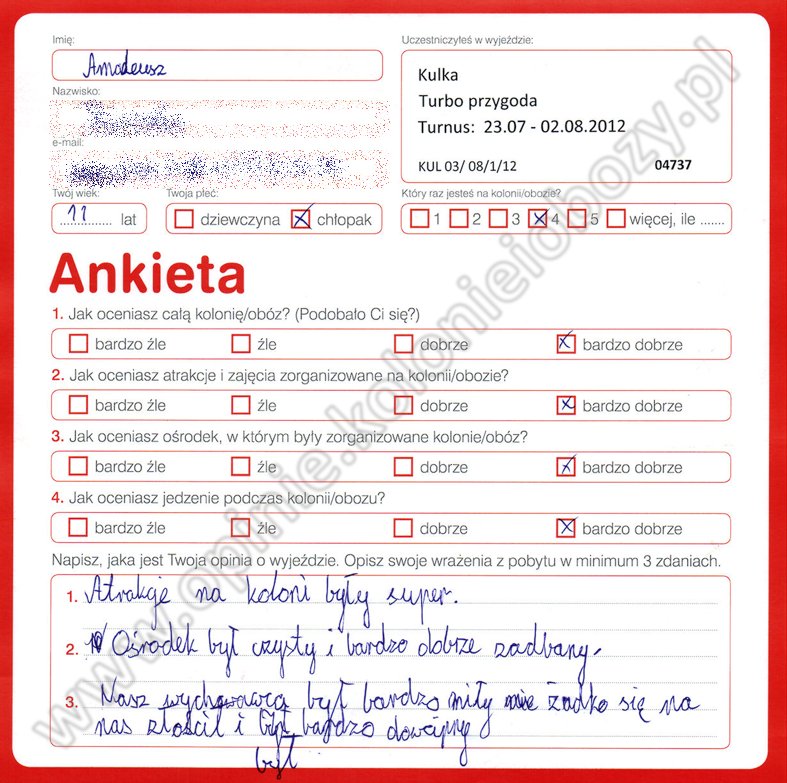 Imię:
Amadeusz
Nazwisko:
e-mail:
Twój wiek:
11 lat
Twoja płeć:
dziewczyna chłopak
Uczestniczyłeś w wyjeździe:
Kulka
Turbo przygoda
Turnus: 23.07 - 02.08.2012
KUL 03/ 08/1/12 04737
Który raz jesteś na kolonii/obozie?
1 2 3 4 5 więcej, ile .......
Ankieta
1. Jak oceniasz całą kolonię/obóz? (Podobało Ci się?)
bardzo źle źle dobrze bardzo dobrze
2. Jak oceniasz atrakcje i zajęcia zorganizowane na kolonii/obozie?
bardzo źle źle dobrze bardzo dobrze
3. Jak oceniasz ośrodek, w którym były zorganizowane kolonie/obóz?
bardzo źle źle dobrze bardzo dobrze
4. Jak oceniasz jedzenie podczas kolonii/obozu?
bardzo źle źle dobrze bardzo dobrze
Napisz, jaka jest Twoja opinia o wyjeździe. Opisz swoje wrażenia z pobytu w minimum 3 zdaniach.
1. Atrakcje na koloni były super.
2. Ośrodek był czysty i bardzo dobrze zadbany.
3. Nasz wychowawca był bardzo miły żadko się na
nas złościł i był bardzo dowcipny
był
www.opinie.kolonieiobozy.pl